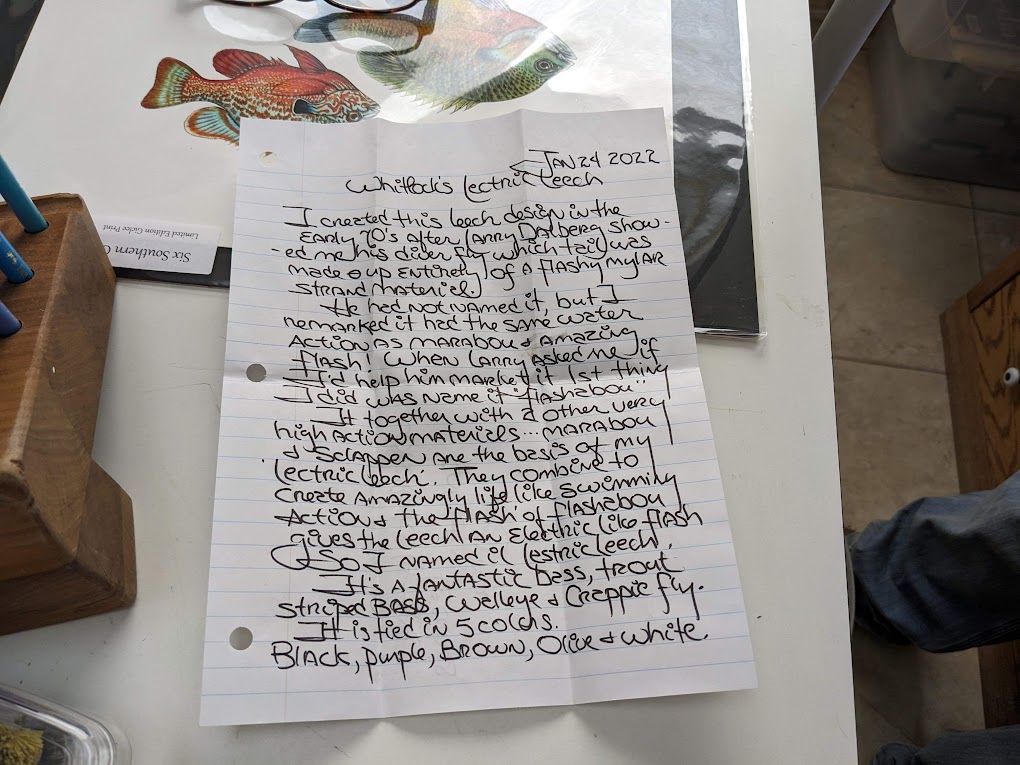 JAN 24 2022
Whitlock's Lectric Leech
I created this leech design in the
EARLY 70's after Larry Dalberg show-
-ed me his diver fly which tail was
made up entirely of a flashy mylar
strand material.
He had not named it, but I
remarked it had the same water
action as marabou & amazing
flash! When Larry asked me if
I'd help him market it 1st thing
I did was name it "flashabou"
It together with 2 other very
high action materiels... marabou
& Sclappen are the basis of my
'Lectric Leech. They combine to
create amazingly life like swimming
action & the flash of flashabou
gives the leech an electric like flash
So I named it Lectric Leech.
It's a fantastic bass, trout
striped Bass, Walleye & Crappie fly.
It is tied in 5 colors.
Black, purple, Brown, Olive & white.
Six Southern
Limited Edition Giclee Print